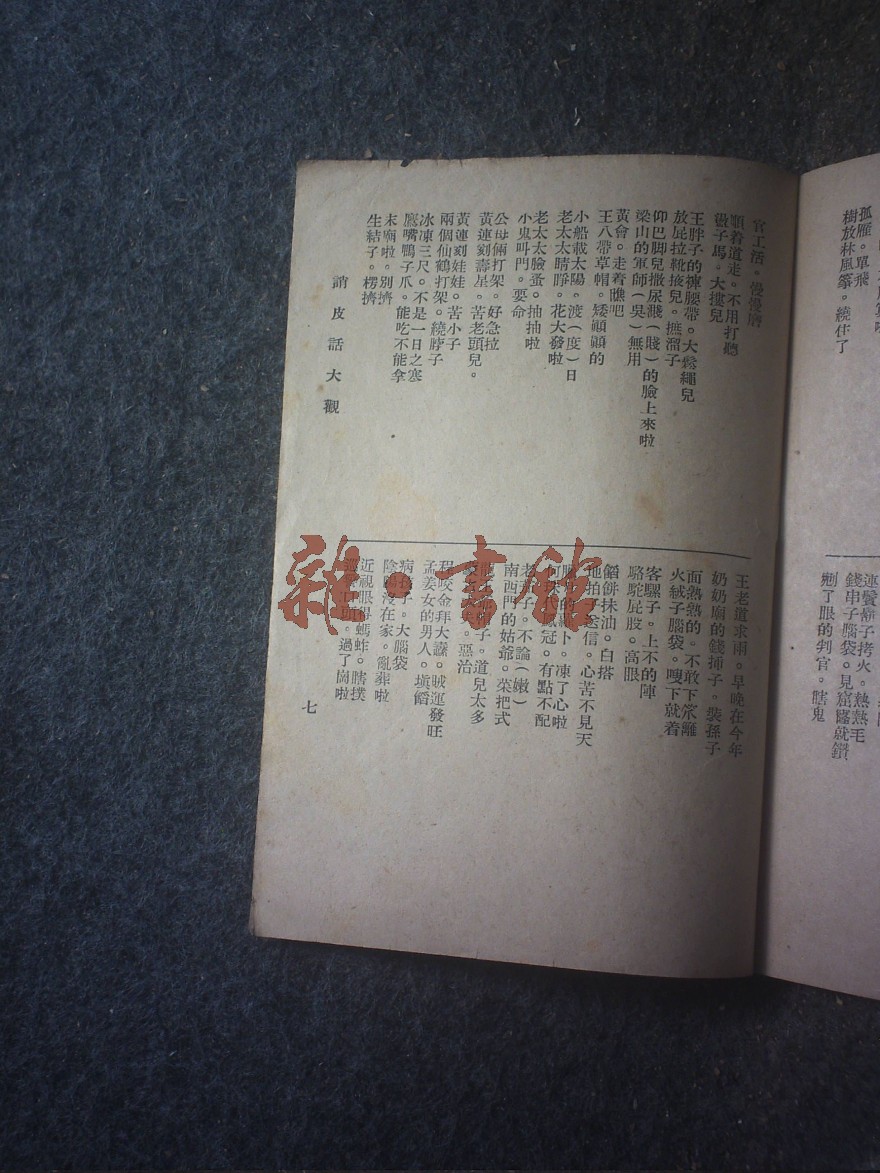 孤雁。單飛
樹放林風箏。繞住了
連鬢鬍子拷火。熱熱毛
錢串子腦袋。見窟窿就鑽
剜了眼的判官。瞎鬼
官工活。慢慢磨
順着道走。不用打聽
敬子馬。大摟兒
王胖子的褲腰帶。大鬆繩兒
放屁拉靴掖兒。撫溜子
仰巴脚兒撒尿濺(賤)的臉上來啦
梁山的軍師(吳)無用
黃會。走着瞧吧
王八帶草帽。矮顢顢的
小船載太陽。渡(度)日
老太太睛睜。花大發啦
老太太臉蚤。抽抽啦
小鬼叫門。要命
公母倆打架。好急拉
黃連刻壽星。苦老頭兒。
黃連刻娃娃。苦小子
兩個仙鶴打架。繞脖子
冰凍三尺。不是一日之寒
鷹嘴鴨子爪。能吃不能拿
末廟啦。別擠
生結子。楞擠
俏皮話大觀
王老道求雨。早晚在今年
奶奶廟的錢揷子。裝孫子
面熱熱的。不敢下笊籬
火絨子腦袋。嗖下就着
客騾子。上不的陣
駱駝屁股。高眼
餡餅抹油。白搭
地拍子送信。心苦不見天
凍了心啦
冠。有點不配
老 子。不論(嫩)
南西門的姑爺。菜把式
子。道兒太多
惡治
程咬金拜大纛。賊運發旺
孟姜女的男人。塡餡
病孩子。大腦袋
陰陽沒在家。亂葬啦
近視眼得螞蚱。瞎撲
過了崗啦
七
雜·書館